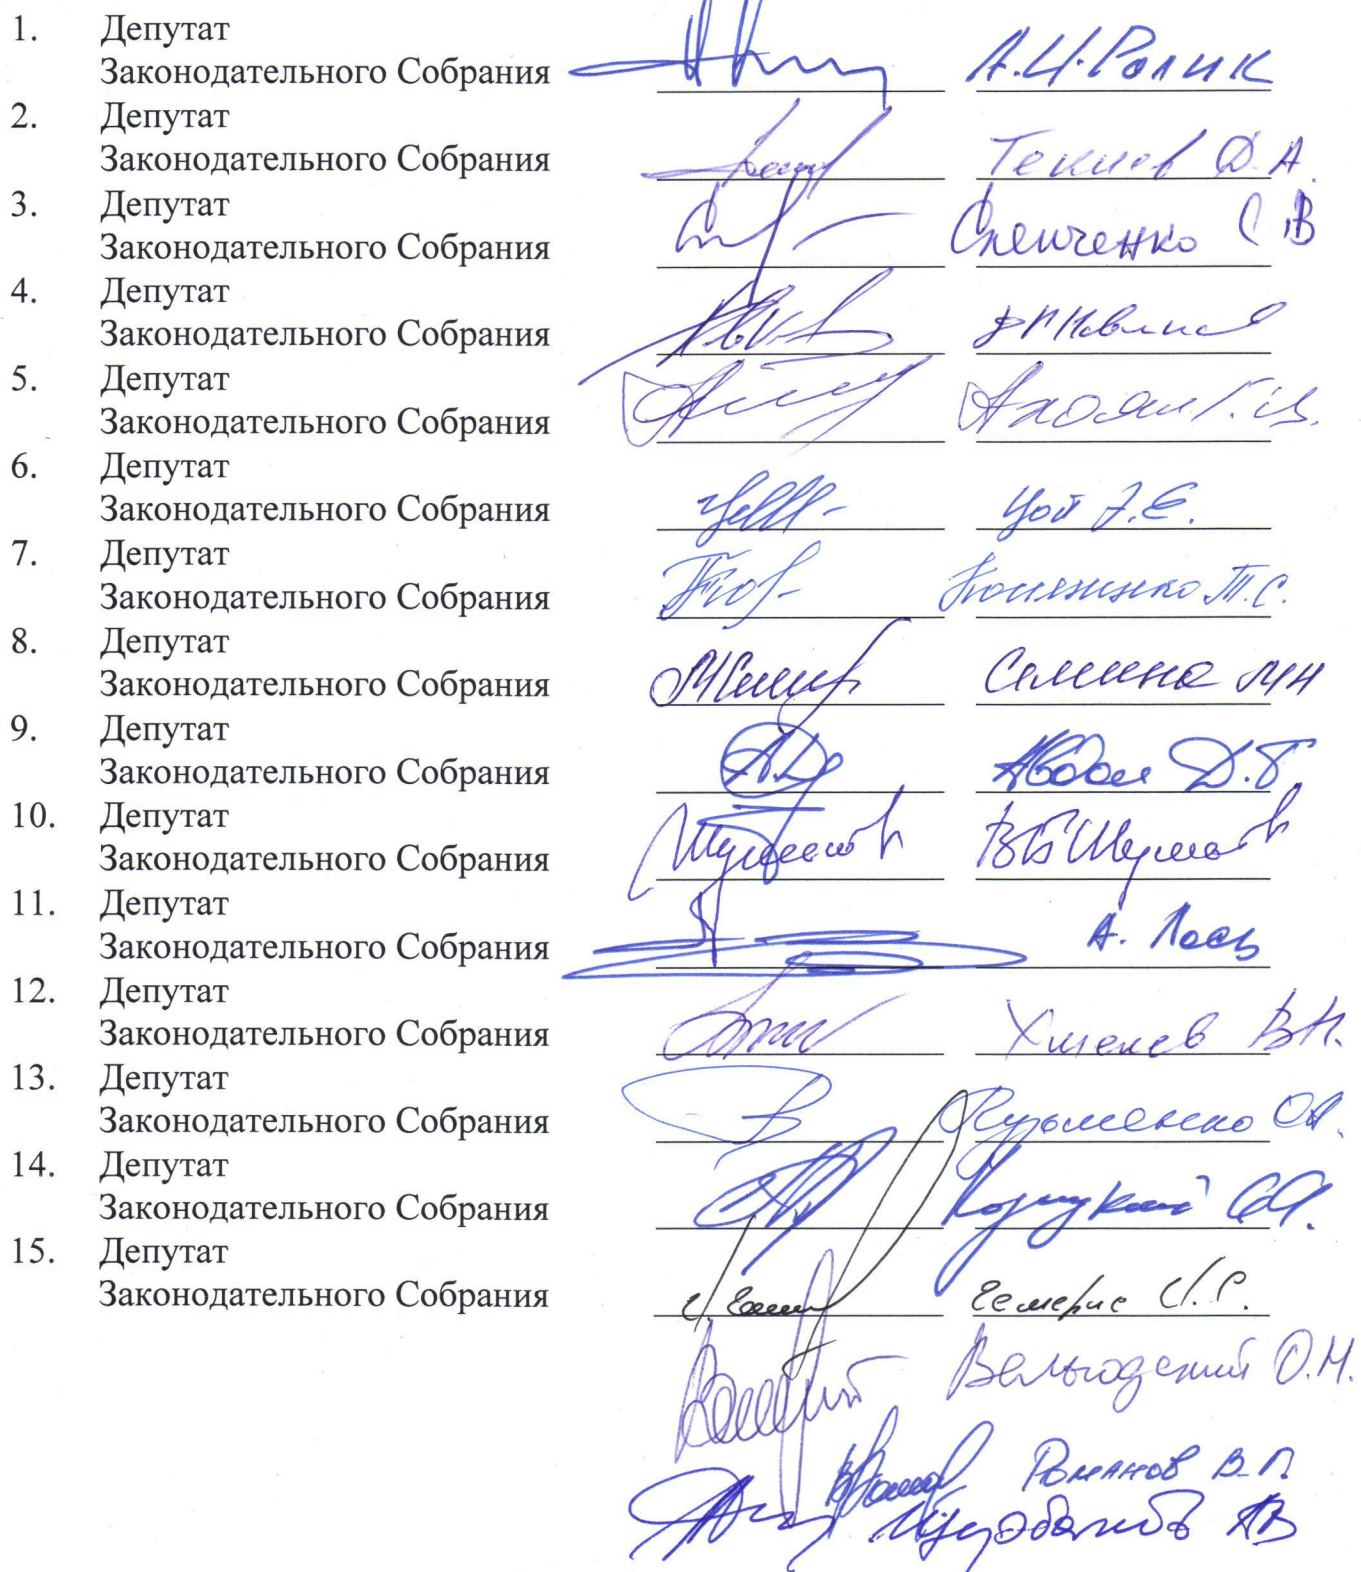 1. Депутат
Законодательного Собрания А.И.Ролик
2. Депутат
Законодательного Собрания Текиев Д.А.
3. Депутат
Законодательного Собрания Слепченко С В
4. Депутат
Законодательного Собрания
5. Депутат
Законодательного Собрания Ахоян Г.Ц.
6. Депутат
Законодательного Собрания Цой Э.Е.
7. Депутат
Законодательного Собрания Т.С.
8. Депутат
Законодательного Собрания Семина МН
9. Депутат
Законодательного Собрания Абдал Д.Т
10. Депутат
Законодательного Собрания ВБ Шуматов
11. Депутат
Законодательного Собрания А. Лось
12. Депутат
Законодательного Собрания Хмелев В.Н.
13. Депутат
Законодательного Собрания Кузьменко О.А.
14. Депутат
Законодательного Собрания
15. Депутат
Законодательного Собрания Чемерис И.С.
Вельгодский О.Н.
Романов В.П.
АВ